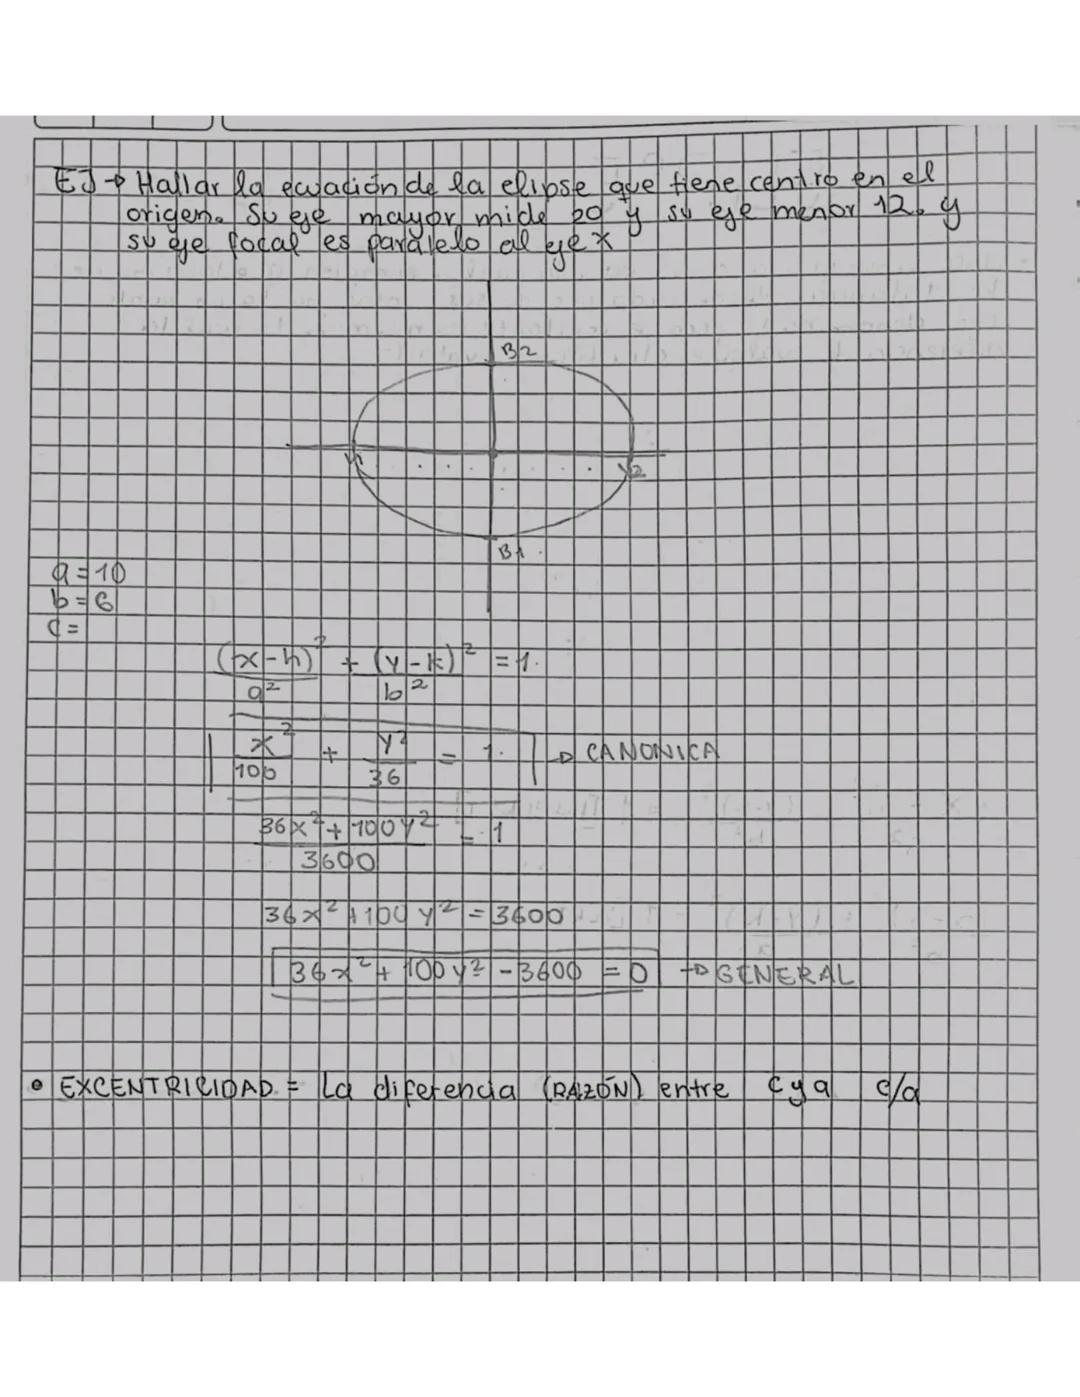 EJ → Hallar la ecuación de la elipse que tiene centro en el
origen. Su eje mayor mide 20 y su eje menor 12, y
su eje focal es paralelo al eje x
B2
V1
V2
B1
a = 10
b = 6
c =
(x-h)² + (y-k)² = 1.
a² b²
x² + y² = 1. → CANONICA
100 36
36x² + 100y² = 1
3600
36x² + 100y² = 3600
36x² + 100y² - 3600 = 0 → GENERAL
• EXCENTRICIDAD = La diferencia (RAZÓN) entre c y a c/a